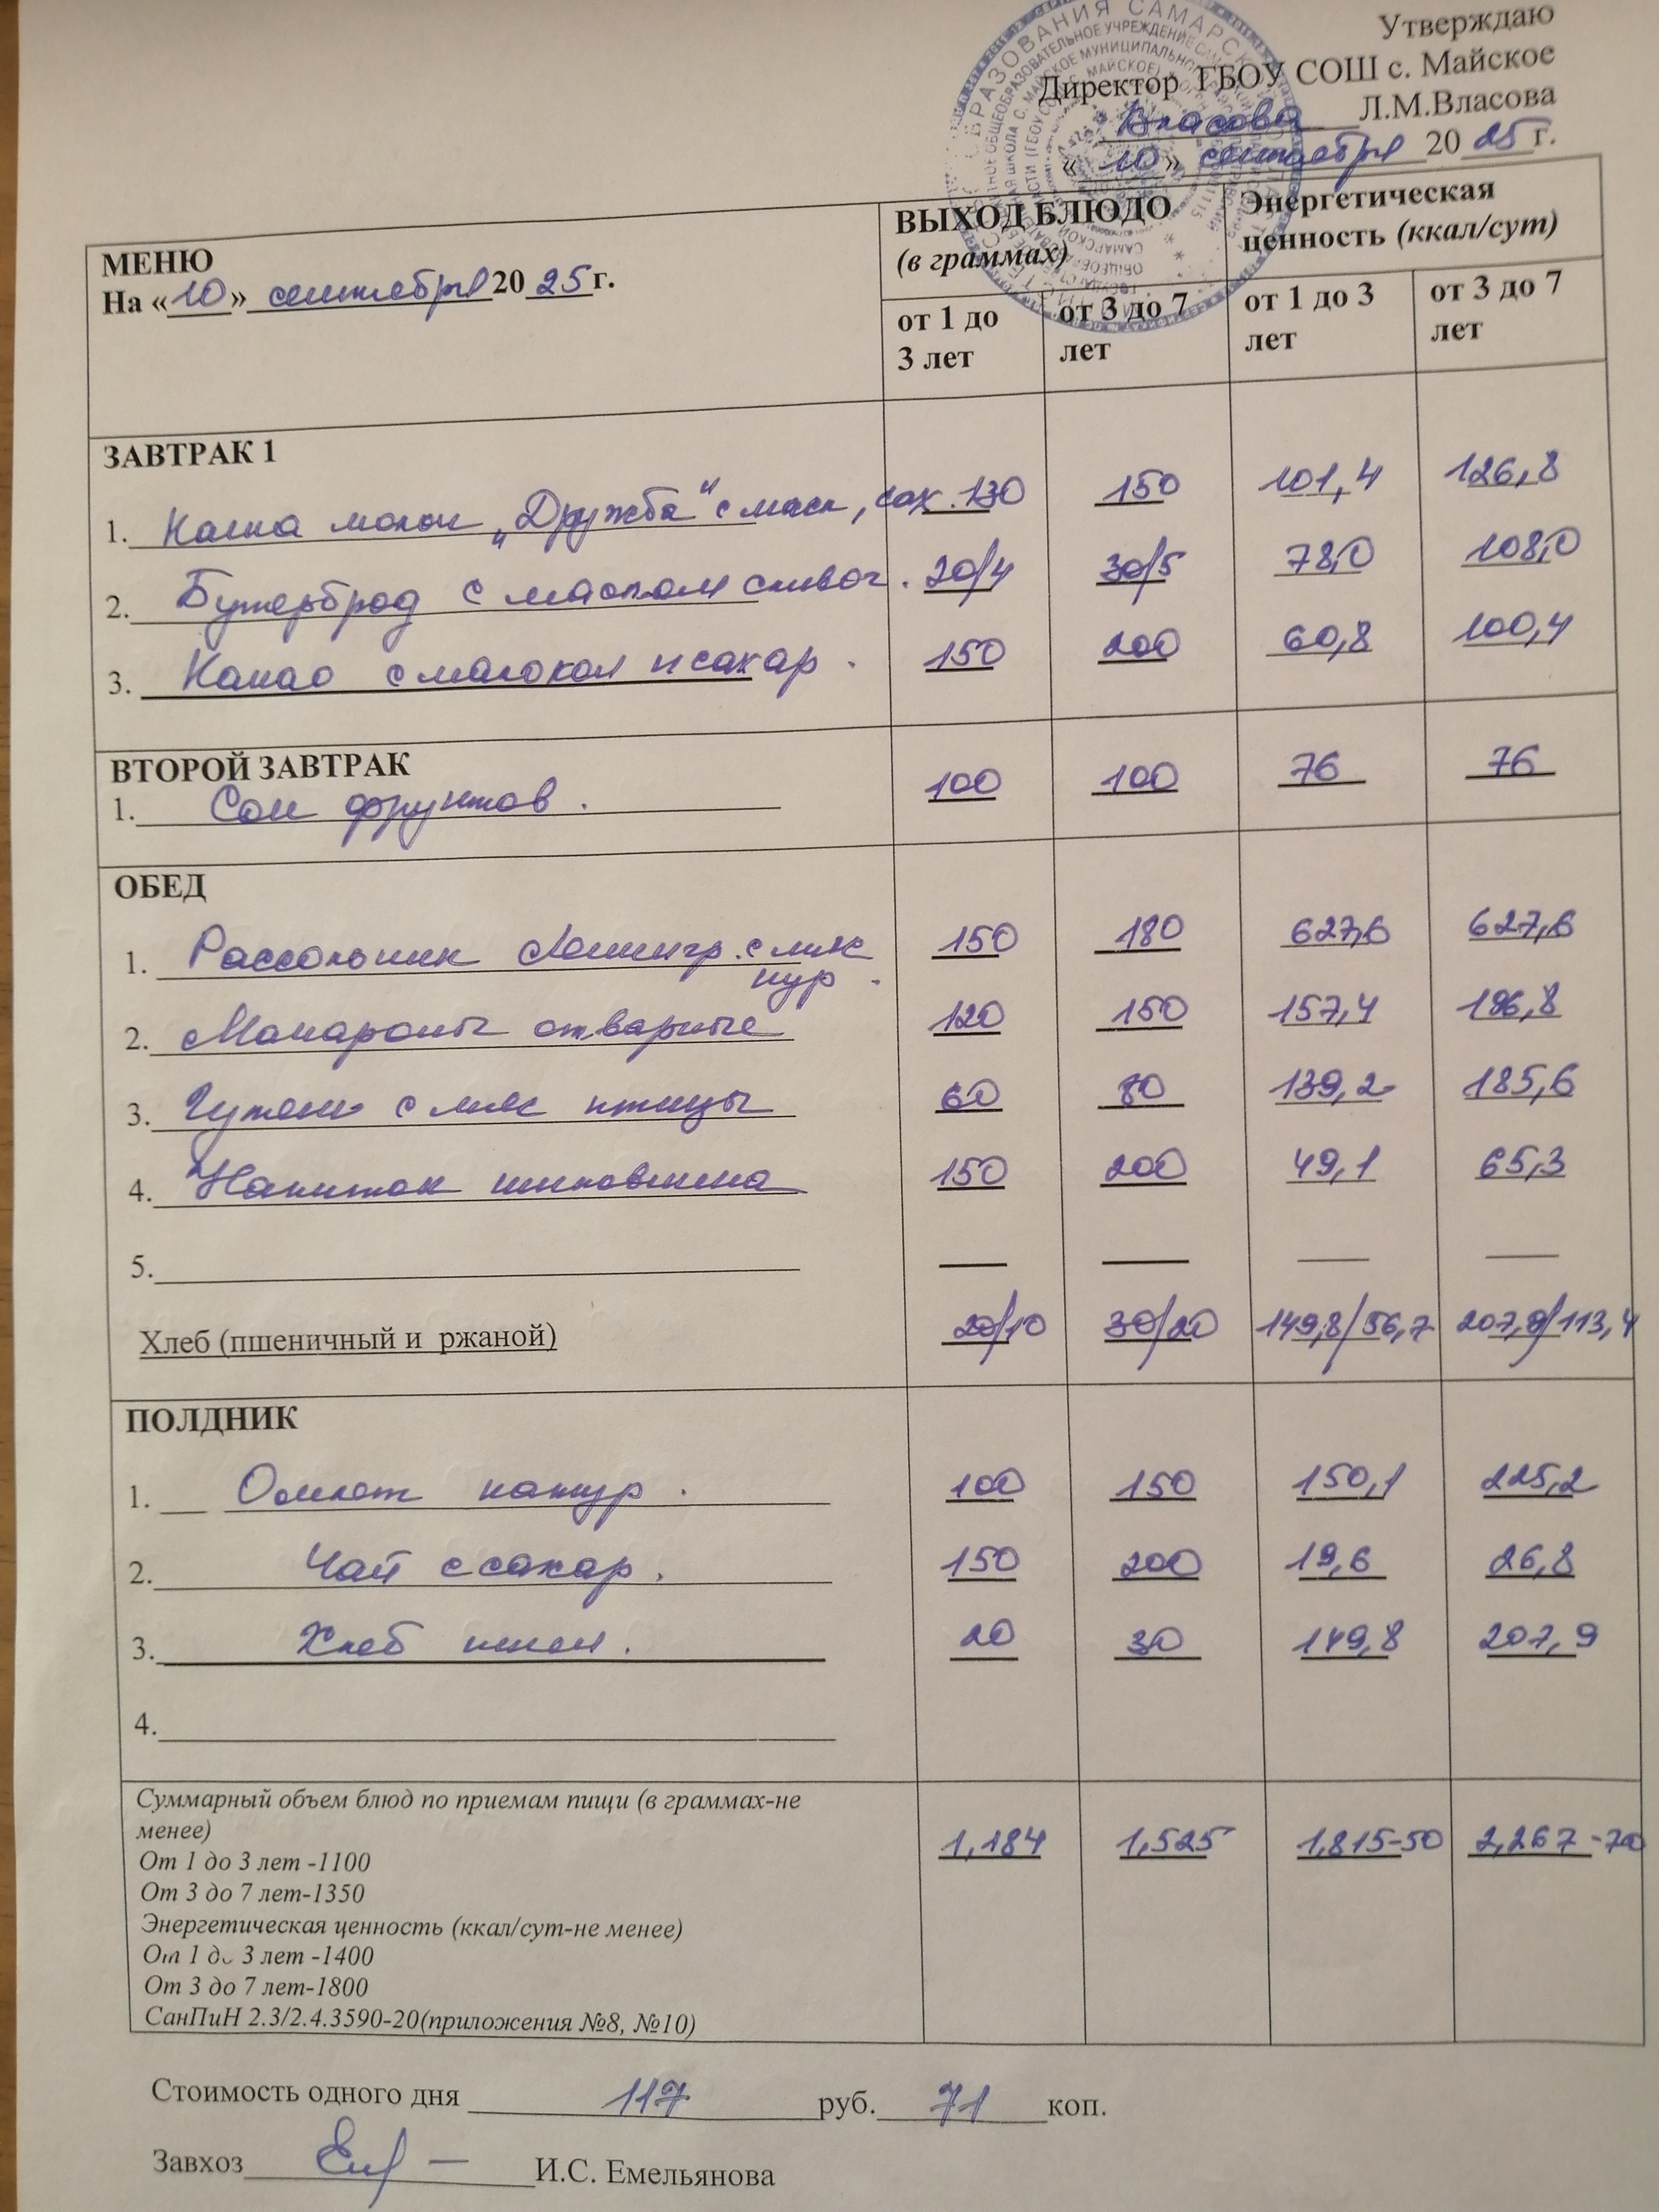 Утверждаю
Директор ГБОУ СОШ с. Майское
Власова Л.М.Власова
«10» сентября 2025г.
МЕНЮ
На «10» сентября 2025г.
ВЫХОД БЛЮДО
(в граммах)
Энергетическая
ценность (ккал/сут)
от 1 до
3 лет
от 3 до 7
лет
от 1 до 3
лет
от 3 до 7
лет
ЗАВТРАК 1
1. Каша молоч „Дружба“ с масл, сах. 130 150 101,4 126,8
2. Бутерброд с маслом сливоч. 20/4 30/5 78,0 108,0
3. Какао с молоком и сахар. 150 200 60,8 100,4
ВТОРОЙ ЗАВТРАК
1. Сок фруктов. 100 100 76 76
ОБЕД
1. Рассольник Ленингр. с мяс 150 180 627,6 627,6
кур.
2. Макароны отварные 120 150 157,4 196,8
3. Гуляш с мяс птицы 60 80 139,2 185,6
4. Напиток шиповника 150 200 49,1 65,3
5.
Хлеб (пшеничный и ржаной) 20/10 30/20 149,8/56,7 207,9/113,4
ПОЛДНИК
1. Омлет натур. 100 150 150,1 225,2
2. Чай с сахар. 150 200 19,6 26,8
3. Хлеб пшен. 20 30 149,8 207,9
4.
Суммарный объем блюд по приемам пищи (в граммах-не
менее)
От 1 до 3 лет -1100
От 3 до 7 лет-1350
Энергетическая ценность (ккал/сут-не менее)
От 1 до 3 лет -1400
От 3 до 7 лет-1800
СанПиН 2.3/2.4.3590-20(приложения №8, №10)
1,184 1,525 1,815-50 2,267-70
Стоимость одного дня 117 руб. 71 коп.
Завхоз И.С. Емельянова